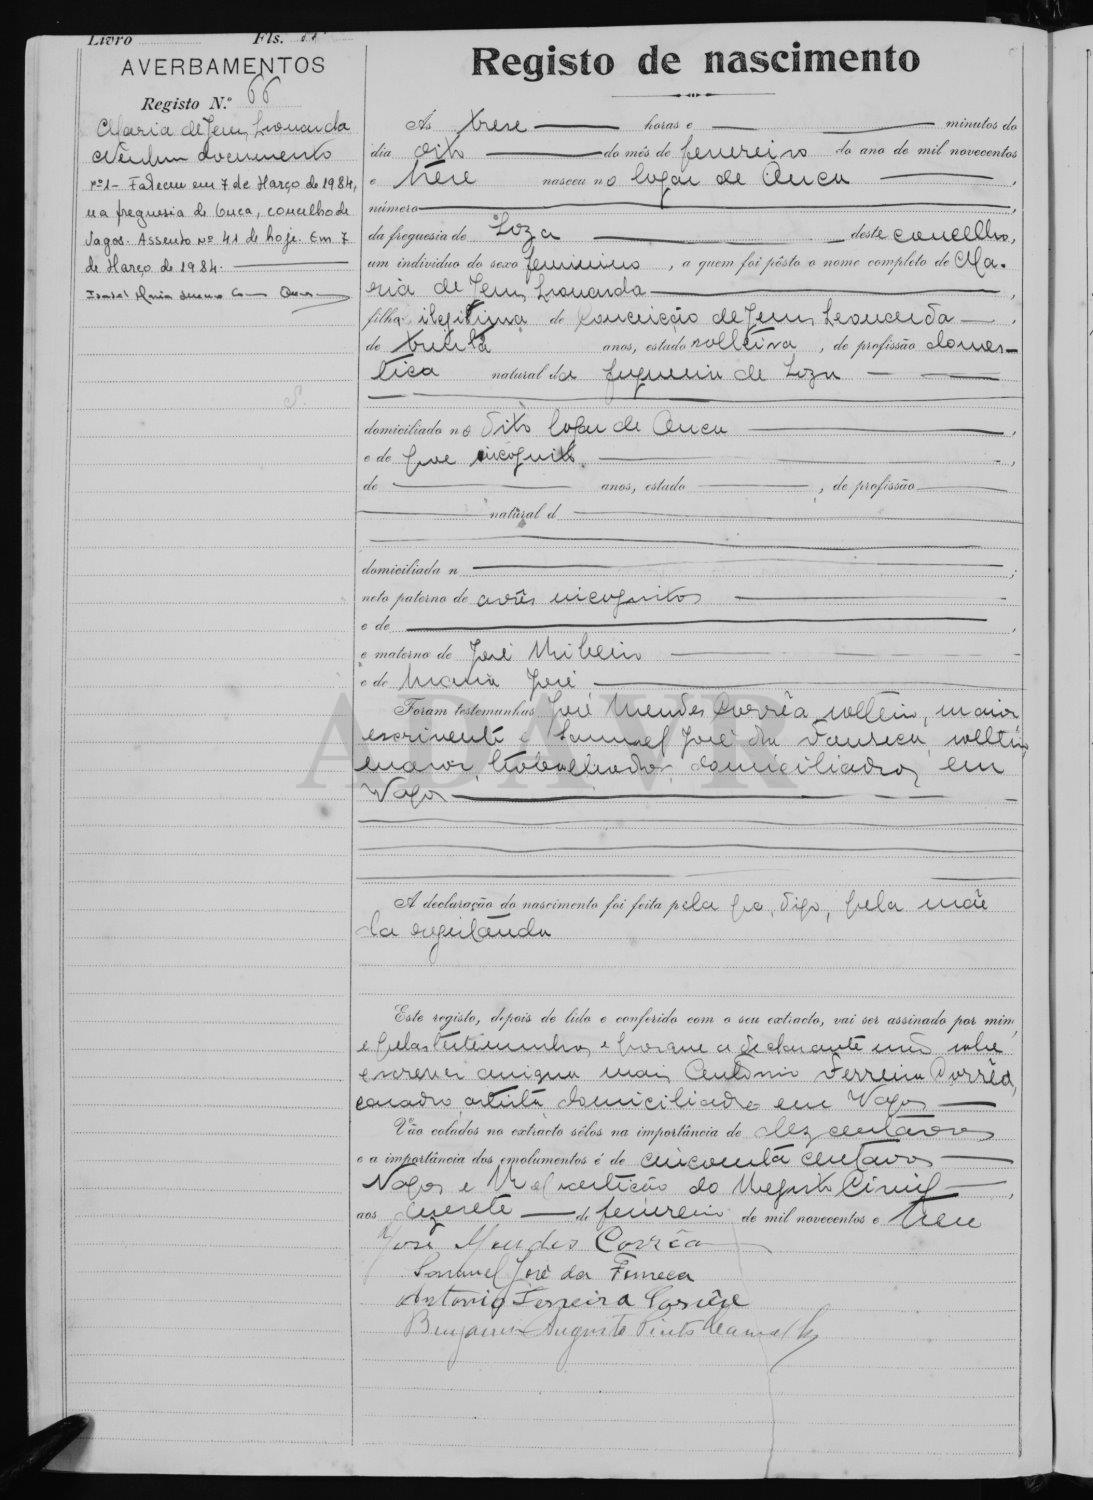 Livro Fls.
AVERBAMENTOS
Registo N.º 66
Maria de Jesus Leonarda
Nenhum documento
nº 1 - Faleceu em 7 de Março de 1984,
na freguesia de Ouca, concelho de
Vagos. Assento nº 41 de hoje. Em 7
de Março de 1984.
Isabel Maria
Registo de nascimento
Ás trese horas e minutos do
dia oito do mês de fevereiro do ano de mil novecentos
e treze nasceu no logar de Ouca ,
número ,
da freguesia de Soza deste concelho,
um indivíduo do sexo feminino , a quem foi pôsto o nome completo de Ma-
ria de Jesus Leonarda ,
filha ilegitima de Conceição de Jesus Leonarda ,
de trinta anos, estado solteira , de profissão domes-
tica natural da freguesia de Soza
domiciliada no dito logar de Ouca ,
e de pae incognito ,
de anos, estado , de profissão
natural d
domiciliada n ;
neto paterno de avós incognitos
e de ,
e materno de José Ribeiro
e de Maria José
Foram testemunhas José Mendes Corrêa, solteiro, maior,
escrivente e Samuel José da Fonseca, solteiro,
maior, trabalhador, domiciliados em
Vagos
ADAVR
A declaração do nascimento foi feita pela pa, digo, pela mãe
da registanda
Este registo, depois de lido e conferido com o seu extracto, vai ser assinado por mim,
e pelas testemunhas, e porque a declarante não sabe
escrever assigna mais Antonio Ferreira Corrêa,
casado, artista, domiciliado em Vagos
Vão colados no extracto sêlos na importância de dez centavos
e a importância dos emolumentos é de cincoenta centavos
Vagos e Repartição do Registo Civil ,
aos dezesete de fevereiro de mil novecentos e treze
José Mendes Corrêa
Samuel José da Fonseca
Antonio Ferreira Corrêa
Benjamim Augusto Pinto